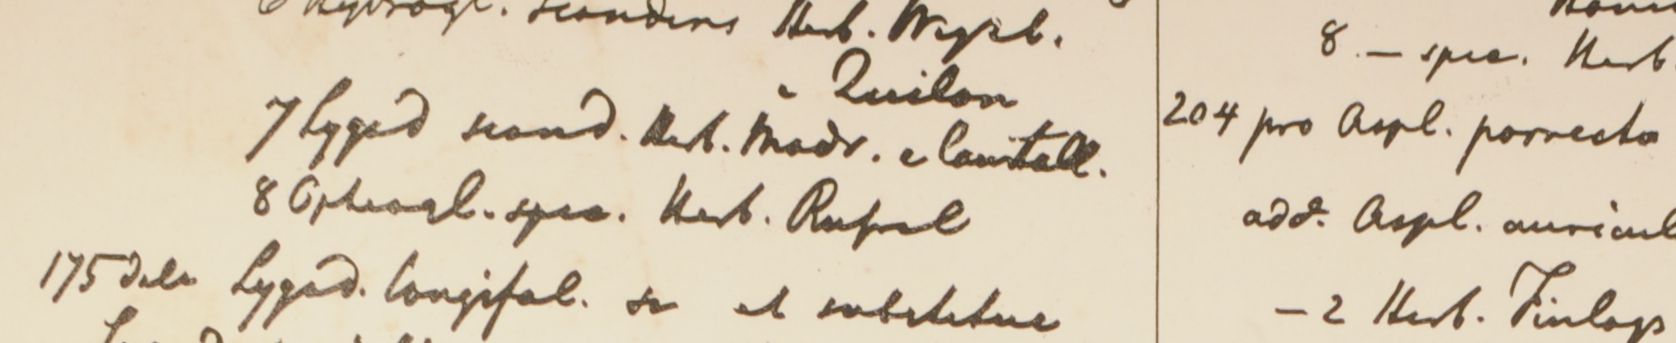 scandens Herb. Wight.
e Quilon
7 Lygod scand. Herb. Madr. e
8 Ophiogl. spec. Herb. Ruper
175 dele Lygod. longifol. Sw et substitue
8 — spec. Herb.
204 pro Aspl. porrecto
add. Aspl. auricul
— 2 Herb. Finlays